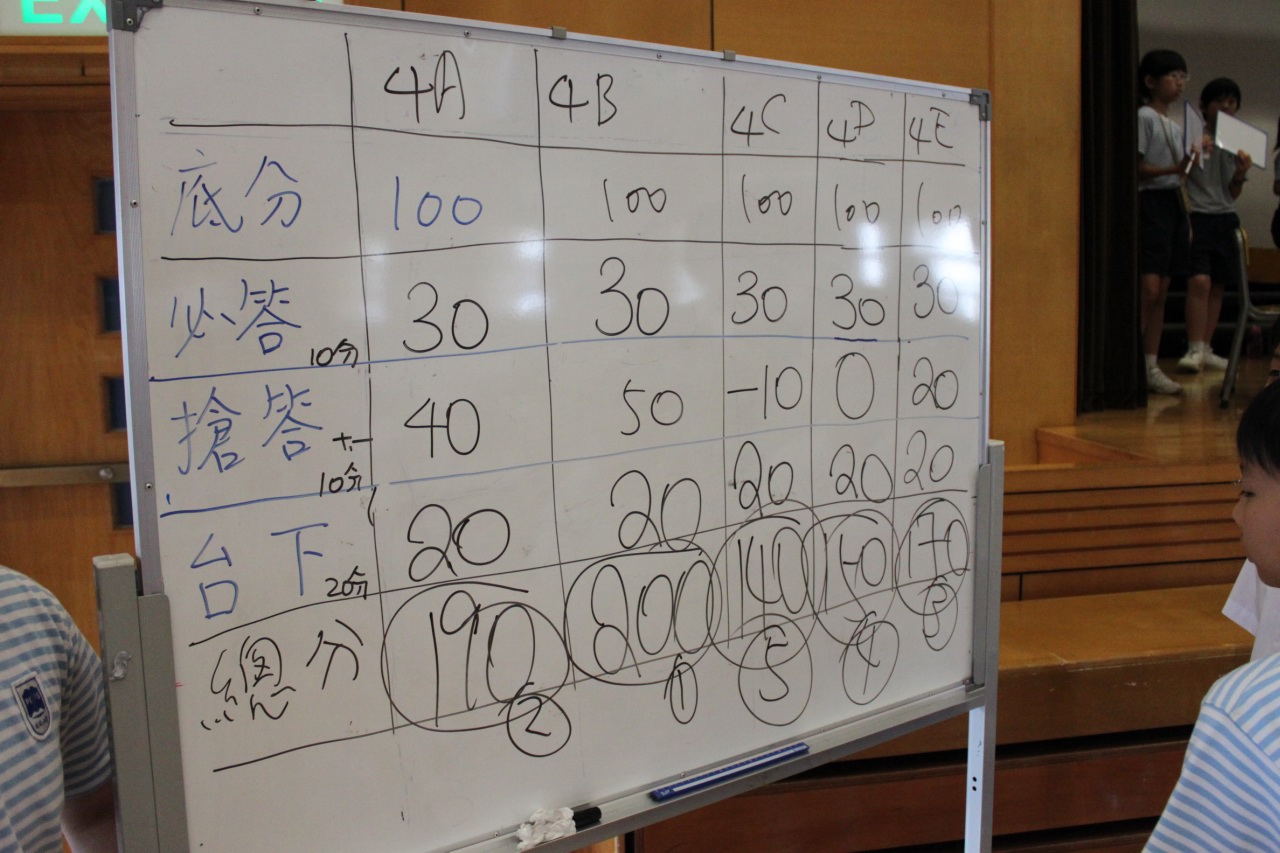 EX
4A 4B 4C 4D 4E
底分 100 100 100 100 100
必答 10分 30 30 30 30 30
搶答 +- 10分 40 50 -10 0 20
台下 20分 20 20 20 20 20
總分 190 200 140 150 170
② ① ⑤ ④ ③